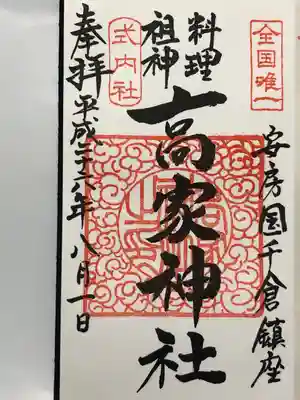 全国唯一
安房国千倉鎮座
料理
祖神
高家神社
式内社
奉拝
平成二六年八月一日